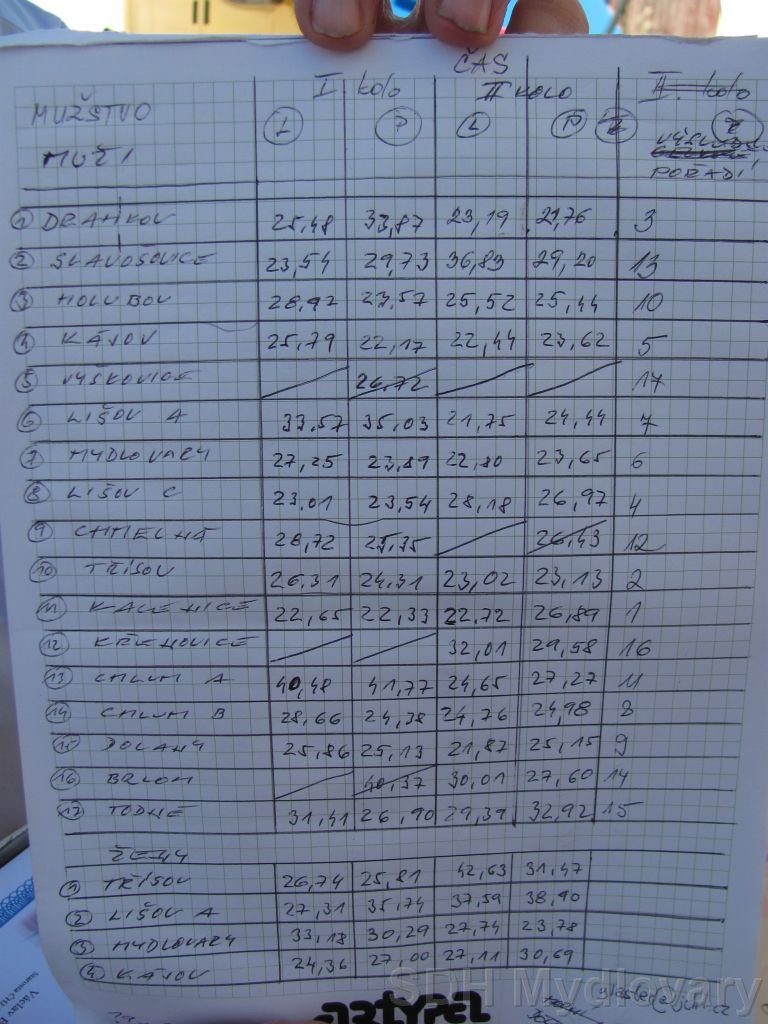 ČAS
MUŽSTVO I kolo II KOLO II. kolo
MUŽI L P L P
POŘADÍ
1 DRAHKOV 25,48 33,87 23,19 21,76 3
2 SLAVOŠOVICE 23,54 29,73 36,83 29,20 13
3 HOLUBOV 28,92 23,57 25,52 25,44 10
4 KÁJOV 25,79 22,17 22,44 23,62 5
5 VYŠKOVICE 26,72 17
6 LIŠOV A 33,57 35,03 21,75 24,44 7
7 MYDLOVARY 27,25 23,89 22,80 23,65 6
8 LIŠOV C 23,01 23,54 28,18 26,97 4
9 CHMELNÁ 28,72 25,35 26,43 12
10 TŘÍSOV 26,31 24,31 23,02 23,13 2
11 KALENICE 22,65 22,33 22,72 26,89 1
12 KŘENOVICE 32,01 29,58 16
13 CHLUM A 40,48 41,77 24,65 27,27 11
14 CHLUM B 28,66 24,38 24,76 24,98 8
15 DOLANY 25,86 25,13 21,87 25,15 9
16 BRLOH 40,37 30,01 27,60 14
17 TODNĚ 31,41 26,90 29,39 32,92 15
ŽENY
1 TŘÍSOV 26,74 25,81 42,63 31,47
2 LIŠOV A 27,31 35,74 37,59 38,90
3 MYDLOVARY 33,18 30,29 27,74 23,78
4 KÁJOV 24,36 27,00 27,11 30,69
SDH Mydlovary
ARTYPEL
Václav